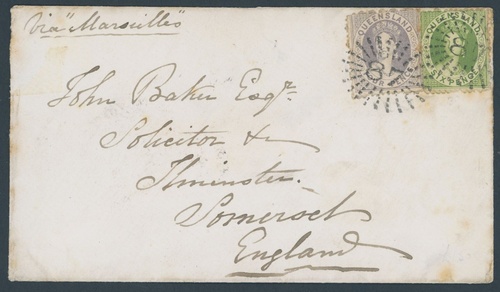 Via "Marseilles"
QUEENSLAND
QUEENSLAND
87
8
SIXPENCE
John Baker Esqr.
Solicitor &c
Ilminster.
Somerset
England